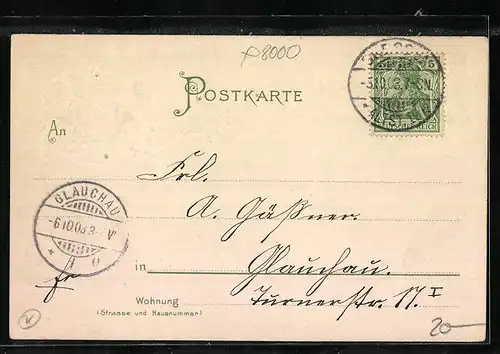 p8000
POSTKARTE
An
Frl.
A. Gäßner.
GLAUCHAU
-6.10.03.
in Glauchau.
fr
Wohnung Turnerstr. 17. I
(Strasse und Hausnummer)
20-